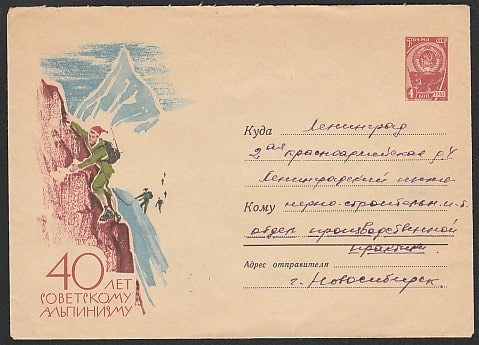 ПОЧТА СССР
4 КОП
Куда Ленинград
2ая красноармейская д.4
Ленинградский инже-
Кому нерно-строительн. и-т.
отдел производственной
практики
Адрес отправителя
г. Новосибирск
40 ЛЕТ
СОВЕТСКОМУ
АЛЬПИНИЗМУ